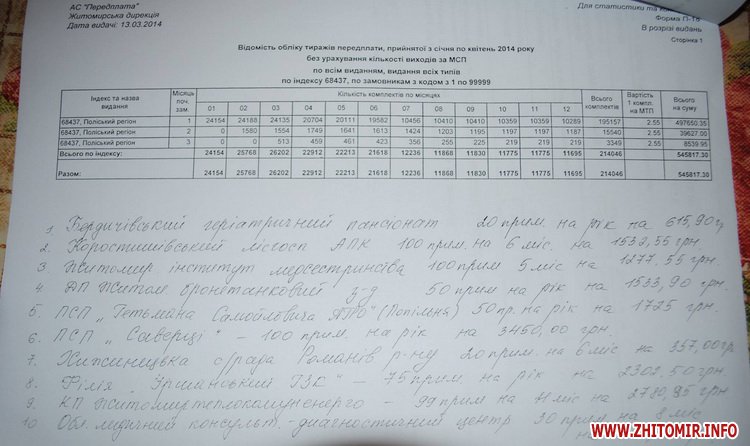 АС "Передплата"
Житомирська дирекція
Дата видачі: 13.03.2014
Для статистики та
Форма П-16
В розрізі видань
Сторінка 1
Відомість обліку тиражів передплати, прийнятої з січня по квітень 2014 року
без урахування кількості виходів за МСП
по всім виданням, видання всіх типів
по індексу 68437, по замовникам з кодом з 1 по 99999
Індекс та назва видання Місяць поч. зам. Кількість комплектів по місяцях Всього комплектів Вартість 1 компл. на МТП Всього на суму
01 02 03 04 05 06 07 08 09 10 11 12
68437, Поліський регіон 1 24154 24188 24135 20704 20111 19582 10456 10410 10410 10359 10359 10289 195157 2.55 497650.35
68437, Поліський регіон 2 0 1580 1554 1749 1641 1613 1424 1203 1195 1197 1197 1187 15540 2.55 39627.00
68437, Поліський регіон 3 0 0 513 459 461 423 356 255 225 219 219 219 3349 2.55 8539.95
Всього по індексу: 24154 25768 26202 22912 22213 21618 12236 11868 11830 11775 11775 11695 214046 545817.30
Разом: 24154 25768 26202 22912 22213 21618 12236 11868 11830 11775 11775 11695 214046 545817.30
1. Бердичівський геріатричний пансіонат 20 прим. на рік на 615,90 г
2. Коростишівський лісгосп АПК 100 прим. на 6 міс. на 1532,55 грн.
3. Житомир інститут медсестринства 100 прим 5 міс на 1277,55 грн
4. ДП Житом бронетанковий з-д 50 прим на рік на 1533,90 грн.
5. ПСП "Гетьмана Самойловича АГРО" (Попільня) 50 пр. на рік на 1725 грн.
6. ПСП "Саверці" - 100 прим. на рік на 3450,00 грн.
7. Хижинецька с/рада Романів р-ну 20 прим. на 6 міс на 357,00 грн
8. Філія "Іршанський ГЗК" - 75 прим на рік на 2302,50 грн
9. КП Житомиртеплокомуненерго - 99 прим на 11 міс на 2780,95 грн
10 Обл. медичний консульт.-діагностичний центр 30 прим на 8 міс
на
WWW.ZHITOMIR.INFO